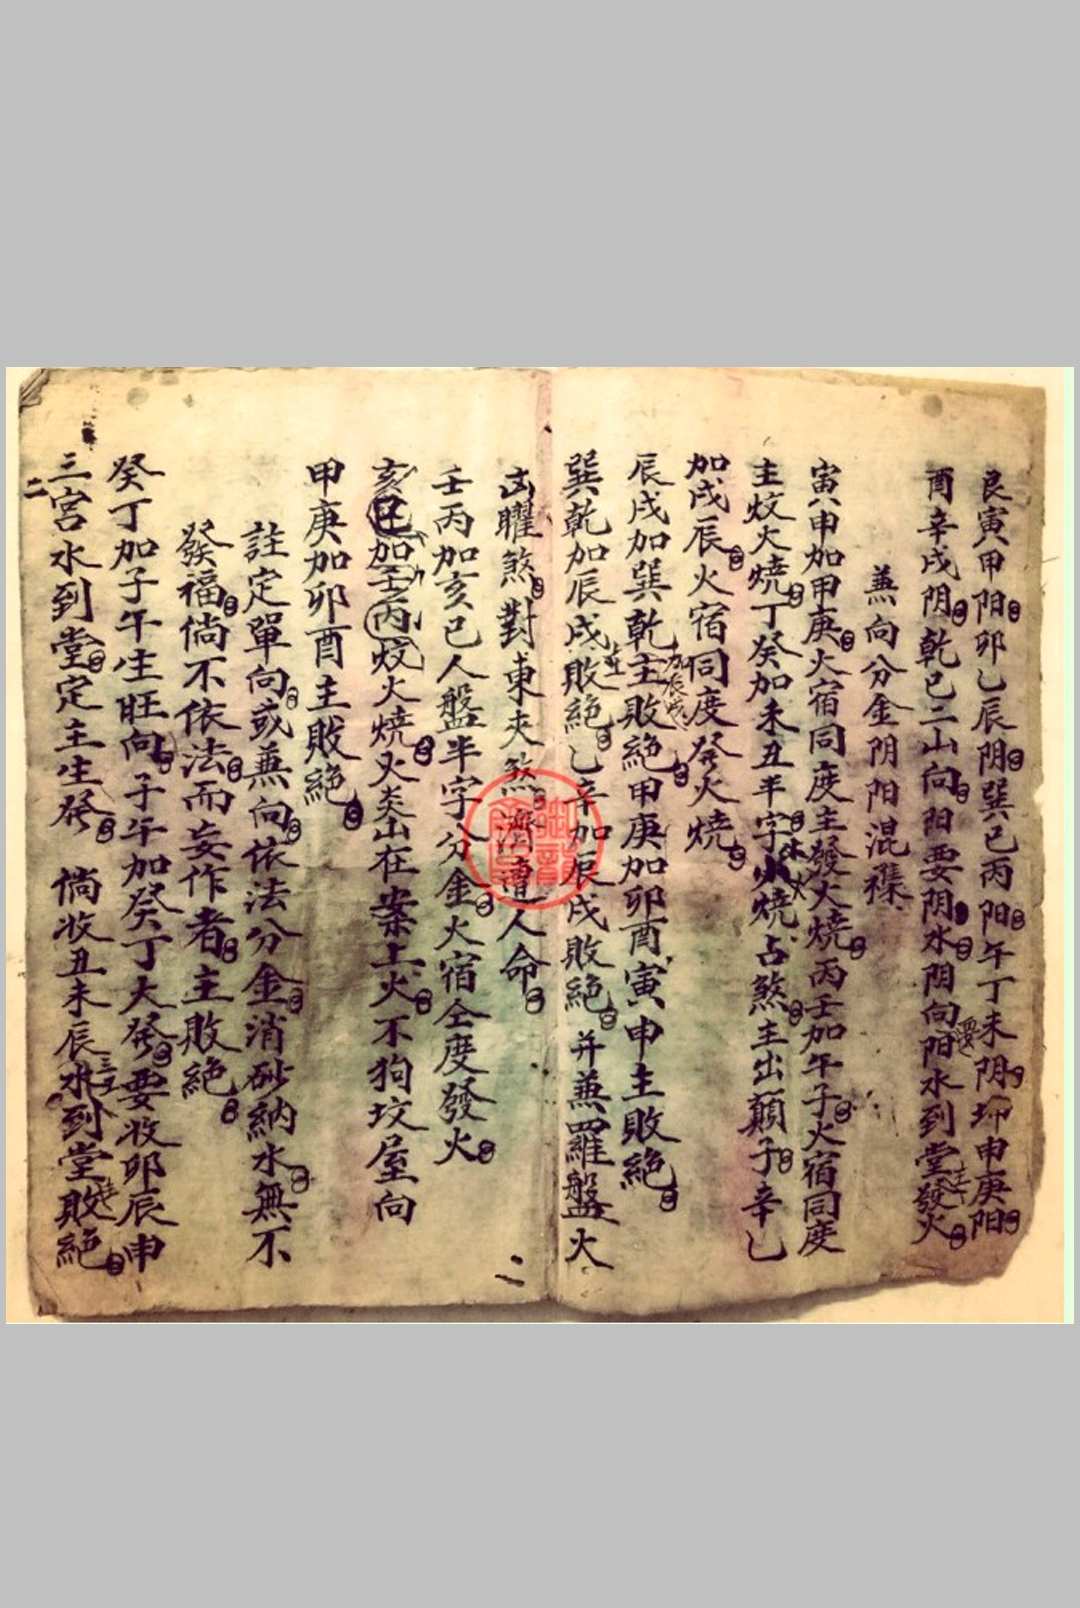 艮寅甲阳卯乙辰阴巽巳丙阳午丁未阴坤申庚阳
酉辛戌阴乾亡二山向阳要阴水阴向阳水到堂發火
兼向分金阴阳混襍
寅申加甲庚火宿同度主發火燒丙壬加午子火宿同度
主炆火燒丁癸加未丑半字火燒占煞主出顛子辛乙
加戌辰火宿同度発火燒
辰戌加巽乾主敗絕甲庚加卯酉寅申主敗絕
加辰戌
巽乾加辰戌敗絕乙辛加辰戌敗絕并兼羅盤火
凶曜煞對東夾煞人命
壬丙加亥巳人盤半字分金火宿仝度發火
亥巳加壬丙炆火燒又炎山在案上火不狗坟屋向
甲庚加卯酉主敗絕
註定單向或兼向依法分金消砂納水無不
發福倘不依法而妄作者主敗絕
癸丁加子午生旺向子午加癸丁大発要收卯辰申
三宫水到堂定主生発 倘收丑未辰水到堂敗絕
二